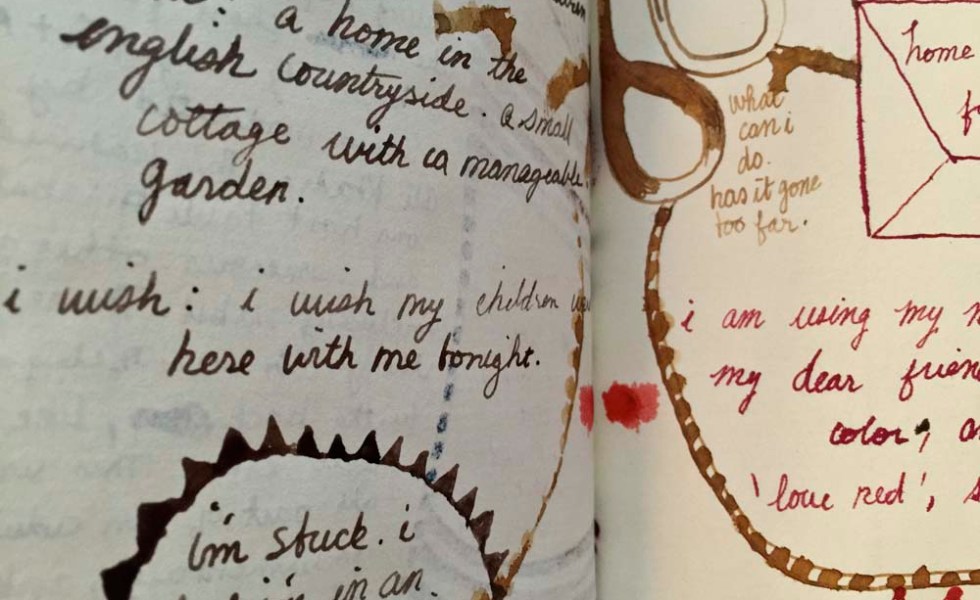 a home in the
english countryside. a small
cottage with a manageable
garden.
i wish: i wish my children
here with me tonight.
i'm stuck. i
in an
what
can i
do.
has it gone
too far.
home
i am using my
my dear
color,
'love red',